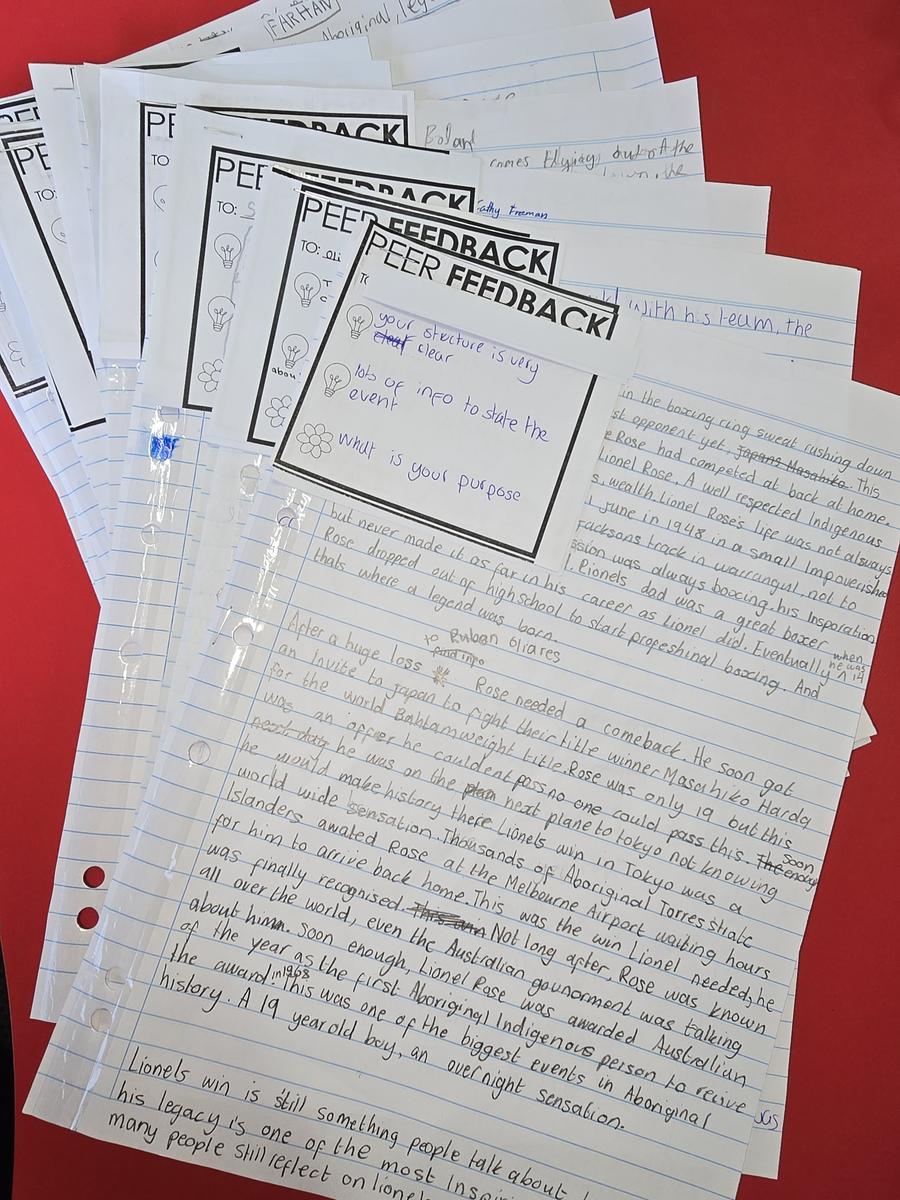 FARHAN
Aboriginal, leg
Boland
comes flying out of the
Cathy Freeman
With his team, the
PEER FEEDBACK
TO:
PEER FEEDBACK
TO: Oli
abou
PEER FEEDBACK
your structure is very
clear
lots of info to state the
event
What is your purpose
in the boxing ring sweat rushing down
st opponent yet, Japans Masahiko This
e Rose had competed at back at home.
Lionel Rose. A well respected Indigenous
s. wealth. Lionel Rose's life was not always
June in 1948 in a small Impoverished
Jacksons track in warrangul, not to
ssion was always boxing. his Insporation
Pionels dad was a great boxer
but never made it as far in his career as Lionel did. Eventually when he was 14
Rose dropped out of highschool to start propeshinal boxing. And
thats where a legend was born.
to Ruban Oliares
After a huge loss Rose needed a comeback. He soon got
an Invite to Japan to fight their title winner Masahiko Harda
for the world Bahtamweight title. Rose was only 19 but this
was an offer he couldent pass no one could pass this. The soon
he was on the plan next plane to tokyo not knowing
he would make history there Lionels win in Tokyo was a
world wide sensation. Thousands of Aboriginal Torres strate
Islanders awated Rose at the Melbourne Airport waiting hours
for him to arrive back home. This was the win Lionel needed, he
was finally recognised. This win Not long after, Rose was known
all over the world, even the Australian gouvornment was talking
about him. soon enough, Lionel Rose was awarded Australian
of the year as the first Aboriginal Indigenous person to recive
the award. in 1968 This was one of the biggest events in Aboriginal
history. A 19 year old boy, an overnight sensation.
Lionels win is still something people talk about
his legacy is one of the most Inspiri
many people still reflect on lionel